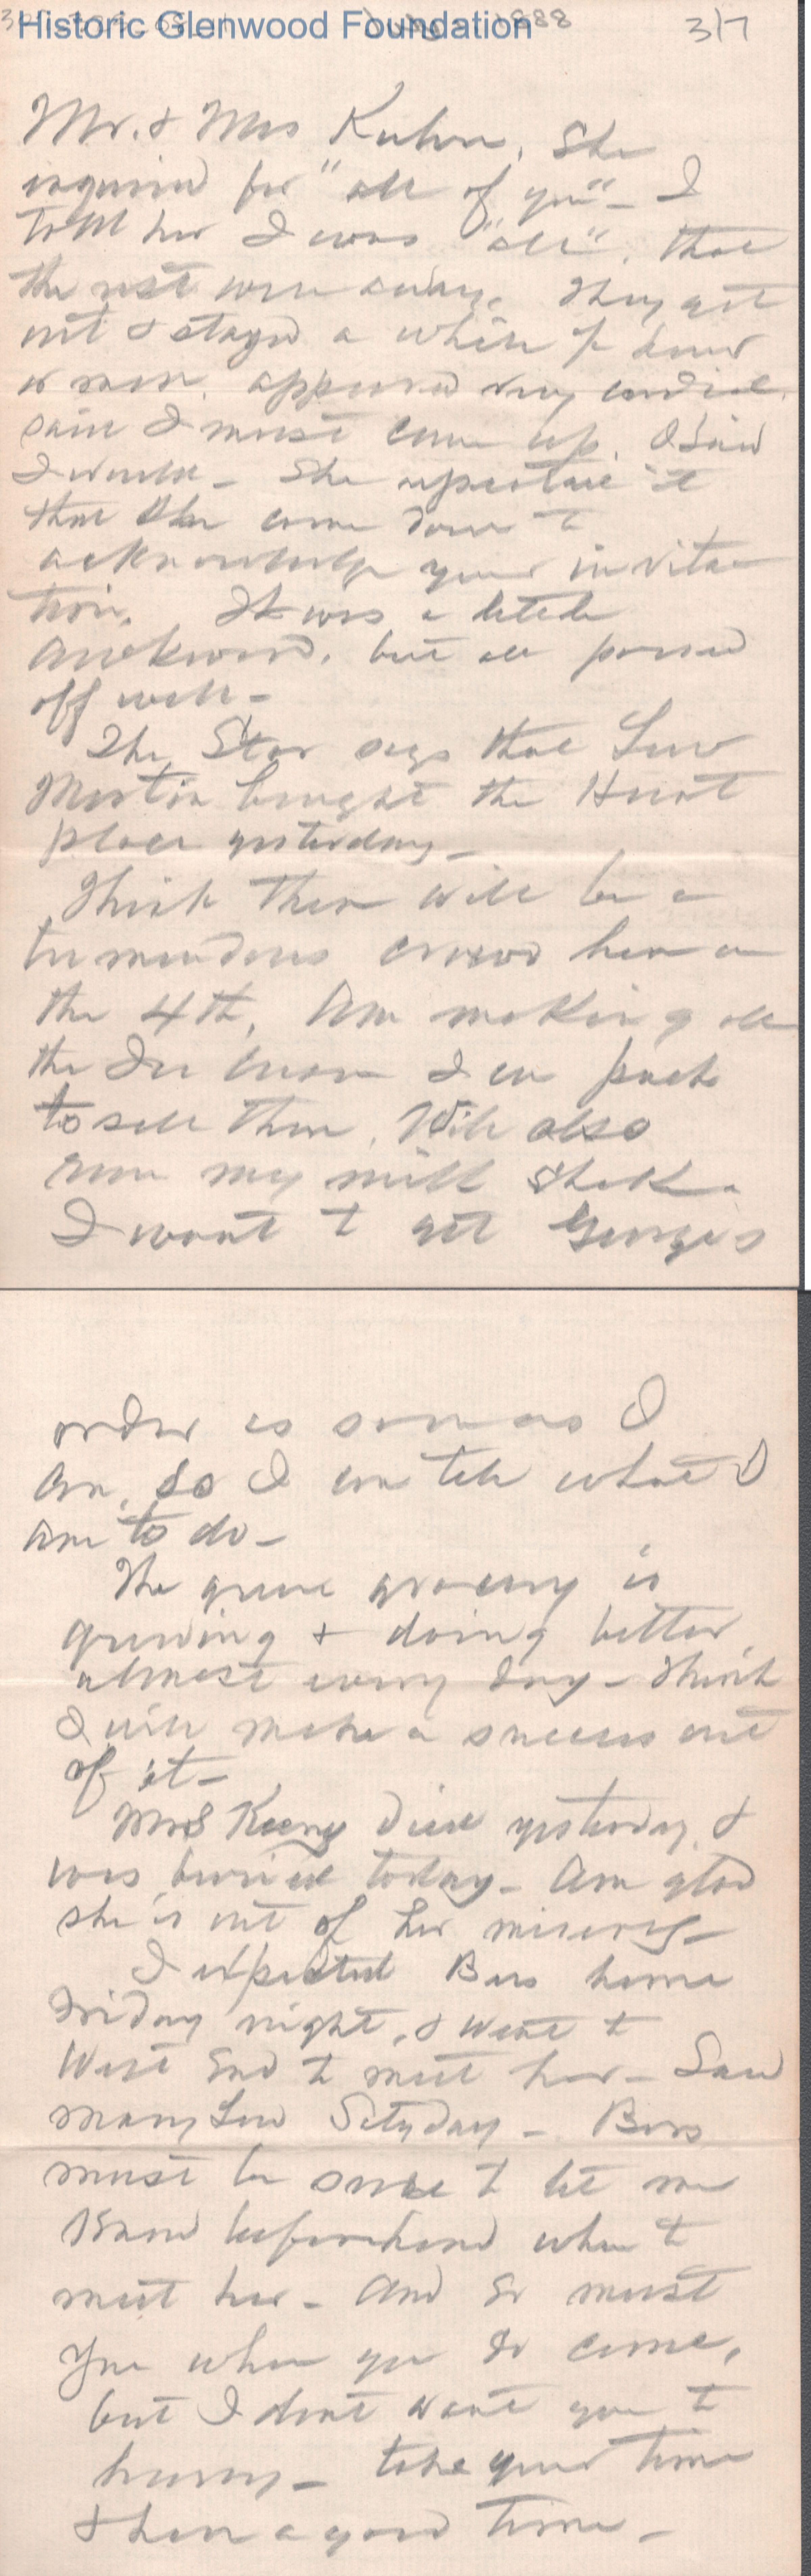 Historic Glenwood Foundation
1888
3/7
Mr. & Mrs Kuhn. She
inquired for "all of you" - I
told her I was "all", that
the rest were away. They got
out & stayed a while ½ hour
or more. appeared very cordial.
said I must come up. I said
I would - She it
that she come down to
acknowledge your invita
tion. It was a little
awkward, but all passed
off well -
The Star says that Luw
Martin bought the Hunt
place yesterday -
Think there will be a
tremendous crowd here on
the 4th, Am making all
the Ice cream I can pack
to sell then. Will also
run my milk shake
I want to get Georges
order as soon as I
can, so I can tell what I
am to do -
The grocery is
growing & doing better
almost every day - Think
I will make a success out
of it -
Mrs Keeny died yesterday &
was buried today - Am glad
she is out of her misery -
I expected Bess home
Friday night, & went to
West End to meet her - Saw
Mary Lou Satyday - Bess
must be sure to let me
know beforehand when to
meet her - And so must
you when you do come,
but I dont want you to
hurry - take your time
& have a good time -